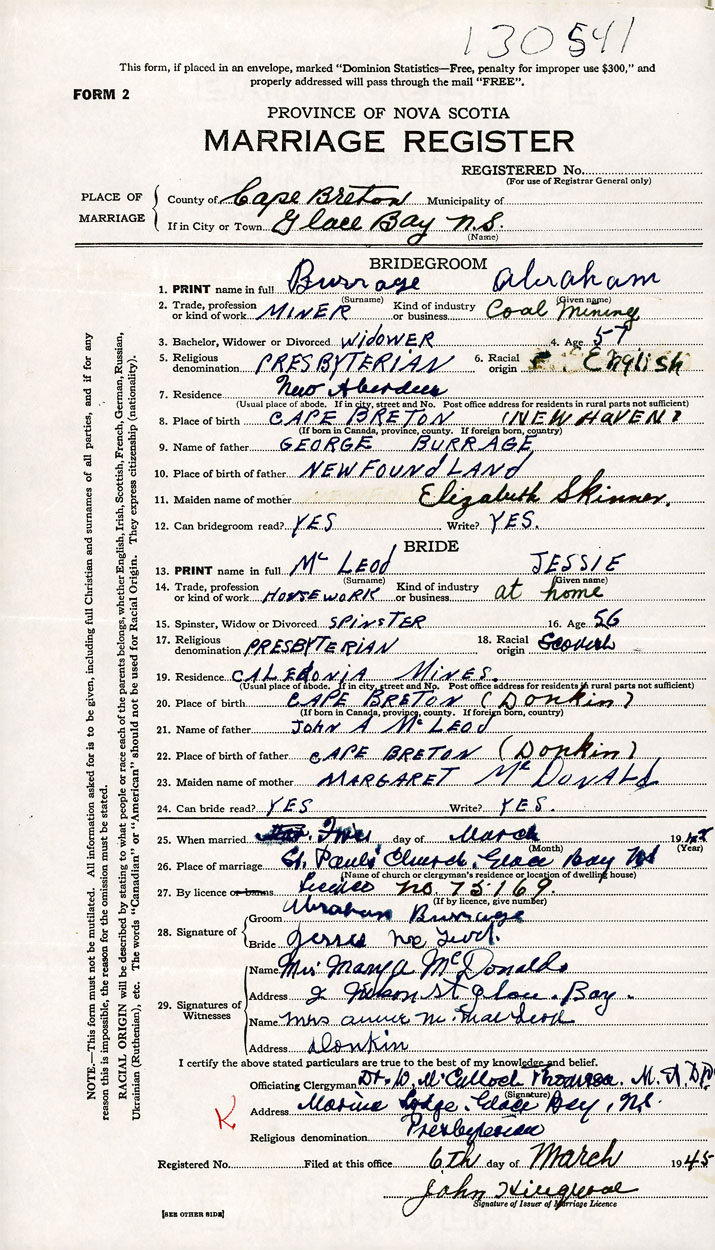 130541
This form, if placed in an envelope, marked “Dominion Statistics—Free, penalty for improper use $300,” and
properly addressed will pass through the mail “FREE”.
FORM 2
PROVINCE OF NOVA SCOTIA
MARRIAGE REGISTER
REGISTERED No.
(For use of Registrar General only)
PLACE OF MARRIAGE
County of Cape Breton Municipality of
If in City or Town Glace Bay N.S.
(Name)
BRIDEGROOM
1. PRINT name in full Burrage Abraham
(Surname) (Given name)
2. Trade, profession or kind of work MINER Kind of industry or business Coal Mining
3. Bachelor, Widower or Divorced WIDOWER 4. Age 57
5. Religious denomination PRESBYTERIAN 6. Racial origin English
7. Residence New Aberdeen
(Usual place of abode. If in city, street and No. Post office address for residents in rural parts not sufficient)
8. Place of birth CAPE BRETON (NEW HAVEN)
(If born in Canada, province, county. If foreign born, country)
9. Name of father GEORGE BURRAGE
10. Place of birth of father NEWFOUNDLAND
11. Maiden name of mother Elizabeth Skinner.
12. Can bridegroom read? YES Write? YES.
BRIDE
13. PRINT name in full Mc LEOD JESSIE
(Surname) (Given name)
14. Trade, profession or kind of work HOUSEWORK Kind of industry or business at home
15. Spinster, Widow or Divorced SPINSTER 16. Age 56
17. Religious denomination PRESBYTERIAN 18. Racial origin Scotch
19. Residence CALEDONIA MINES.
(Usual place of abode. If in city, street and No. Post office address for residents in rural parts not sufficient)
20. Place of birth CAPE BRETON (Donkin)
(If born in Canada, province, county. If foreign born, country)
21. Name of father John A Mc LEOD
22. Place of birth of father CAPE BRETON (Donkin)
23. Maiden name of mother MARGARET Mc DONALD
24. Can bride read? YES Write? YES.
25. When married day of March 19
(Month) (Year)
26. Place of marriage St. Paul's Church, Glace Bay NS
(Name of church or clergyman's residence or location of dwelling house)
27. By licence or banns Licence no. 75169
(If by licence, give number)
28. Signature of
Groom Abraham Burrage
Bride Jessie
29. Signatures of Witnesses
Name Mrs McDonald
Address St Glace Bay.
Name Mrs Annie M. MacLeod
Address Donkin
I certify the above stated particulars are true to the best of my knowledge and belief.
Officiating Clergyman Dr. D. McCulloch Thomson. M.A.
(Signature)
Address Marine Lodge, Glace Bay, N.S.
Religious denomination Presbyterian
K
Registered No. Filed at this office 6th day of March 1945
John
Signature of Issuer of Marriage Licence
[SEE OTHER SIDE]
NOTE.—This form must not be mutilated. All information asked for is to be given, including full Christian and surnames of all parties, and if for any
reason this is impossible, the reason for the omission must be stated.
RACIAL ORIGIN will be described by stating to what people or race each of the parents belongs, whether English, Irish, Scottish, French, German, Russian,
Ukrainian (Ruthenian), etc. The words “Canadian” or “American” should not be used for Racial Origin. They express citizenship (nationality).